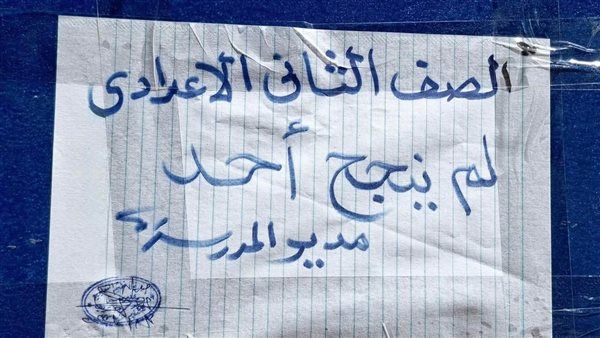 الصف الثانى الاعدادى
لم ينجح أحد
مدير المدرسة